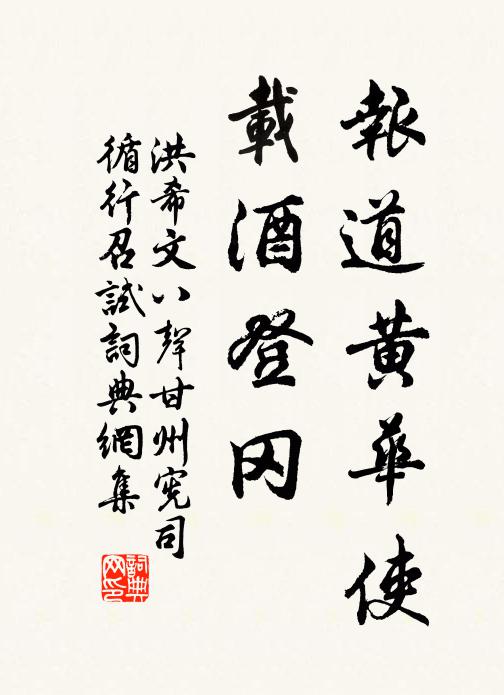 報道黃華使
載酒登冈
洪希文八聲甘州憲司
循行召試詞典網集
詞典网印